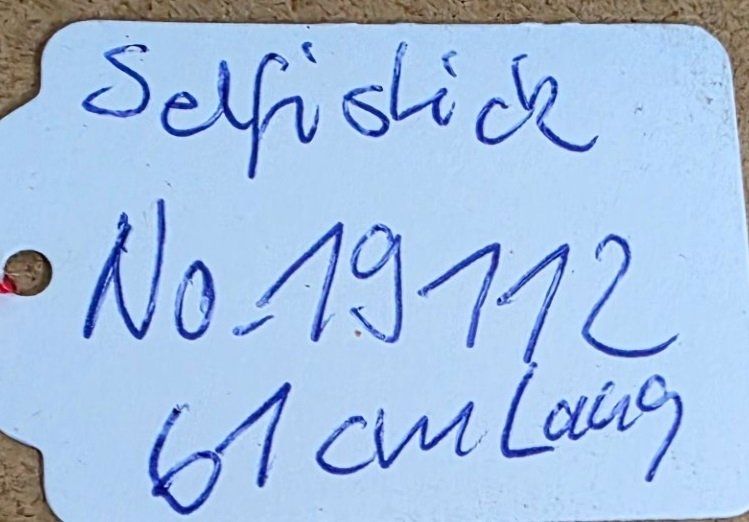 Selfistick
No-19112
61 cm Lang